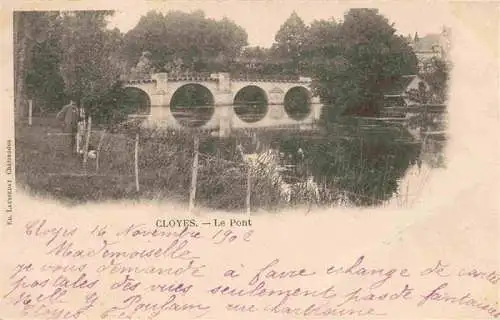 CLOYES. — Le Pont
Ed. LAUSSEDAT Châteaudun
Cloyes 14 Novembre 1902
Mademoiselle
je vous demande à faire échange de cartes
postales des vues seulement pas de fantaisies
Melle G Poulain rue
Cloyes